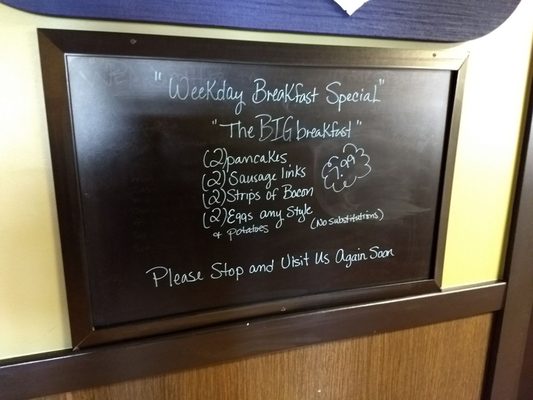 "Weekday Breakfast Special"
"The BIG breakfast"
(2) pancakes
(2) Sausage links
(2) Strips of Bacon
(2) Eggs any Style
& potatoes (No substitutions)
7.99
Please Stop and Visit Us Again Soon